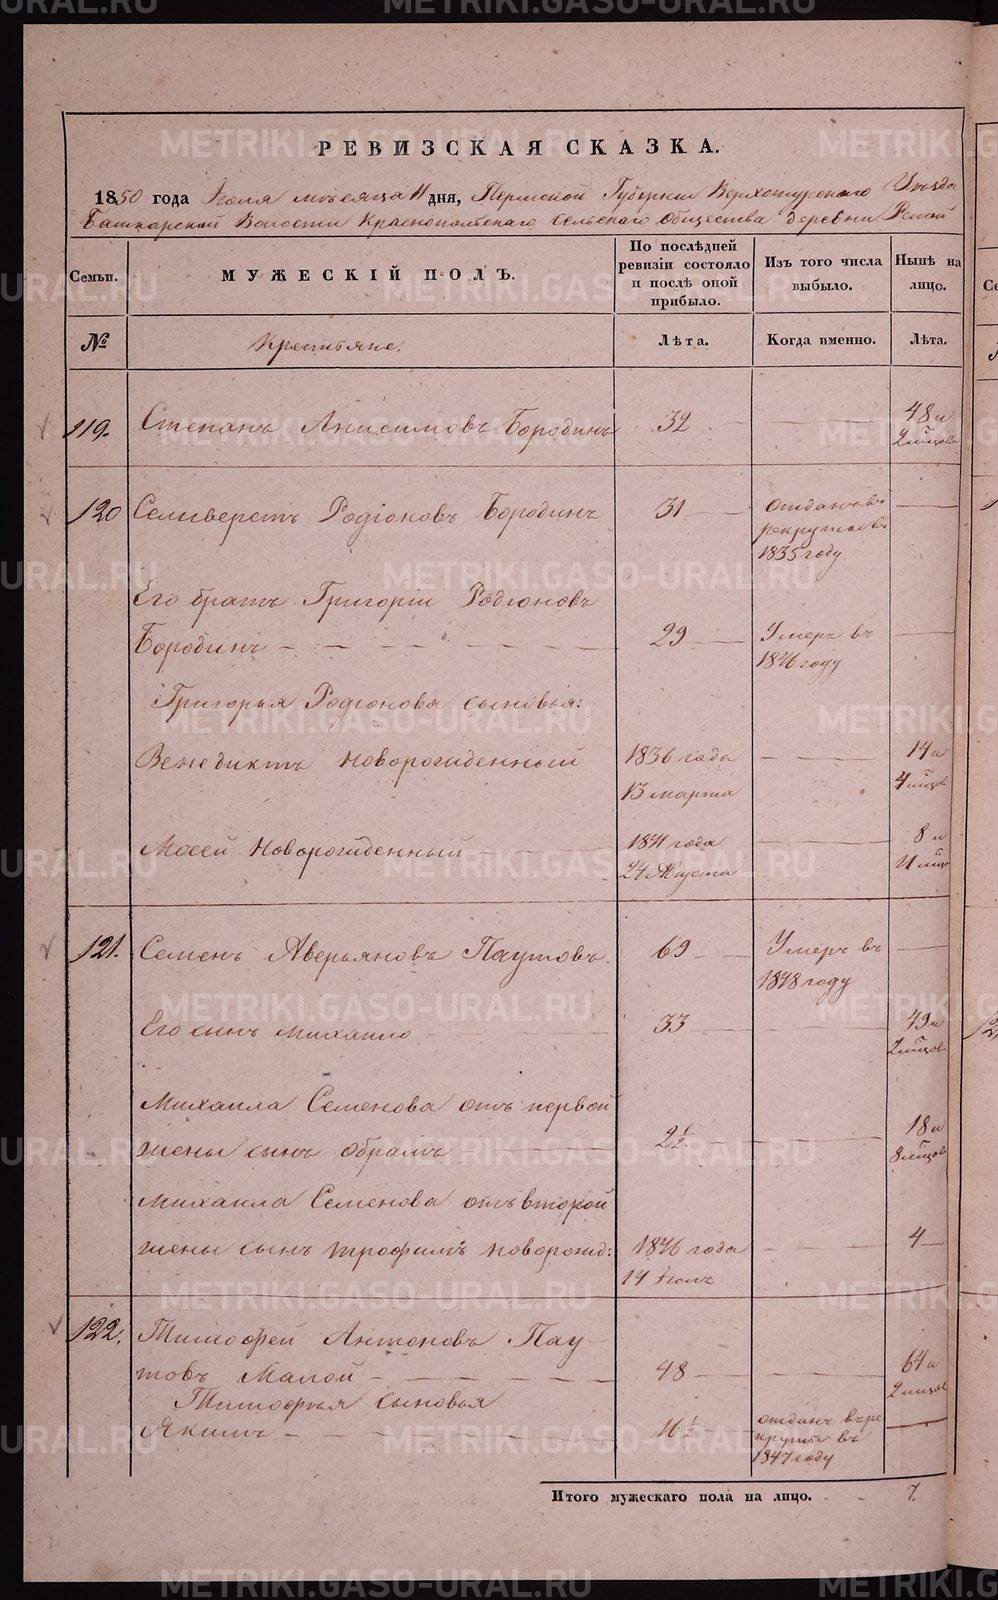 РЕВИЗСКАЯ СКАЗКА.
1850 года Июля месяца 11 дня, Пермской Губернии Верхотурского Уезда
Башкарской Волости Краснопольскаго Сельскаго Общества деревни
Семьи.
МУЖЕСКІЙ ПОЛЪ.
По послѣдней ревизіи состояло и послѣ оной прибыло.
Изъ того числа выбыло.
Нынѣ на лицо.
№
Крестьяне.
Лѣта.
Когда именно.
Лѣта.
119. Степанъ Анисимовъ Бородинъ 32 — — 48 и
2 мцов
120 Селиверстъ Родіоновъ Бородинъ 31 — отданъ въ —
рекруты въ
1835 году
Его братъ Григорій Родіоновъ
Бородинъ — — — 29 — Умеръ въ —
1846 году
Григорья Родіонова сыновья:
Венедиктъ новорожденный 1836 года — 14 и
13 марта 4 мцов
Мосей новорожденный 1841 года — 8 и
24 Августа 11 мцо
121. Семенъ Аверьяновъ Паутовъ. 69 — Умеръ въ —
1848 году
Его сынъ Михаило — 33 — — 49 и
2 мцов
Михаила Семенова отъ первой
жены сынъ Обрамъ — 2½ — — 18 и
8 мцов
Михаила Семенова отъ второй
жены сынъ Трофимъ новорожд: 1846 года — 4 —
14 Іюль
122. Тимофей Антоновъ Пау-
товъ Малой — — — 48 — — 64 и
2 мцов
Тимофья сыновья
Якимъ — — — 16½ отданъ въ ре —
круты въ
1847 году
Итого мужескаго пола на лицо. 7.
METRIKI.GASO-URAL.RU